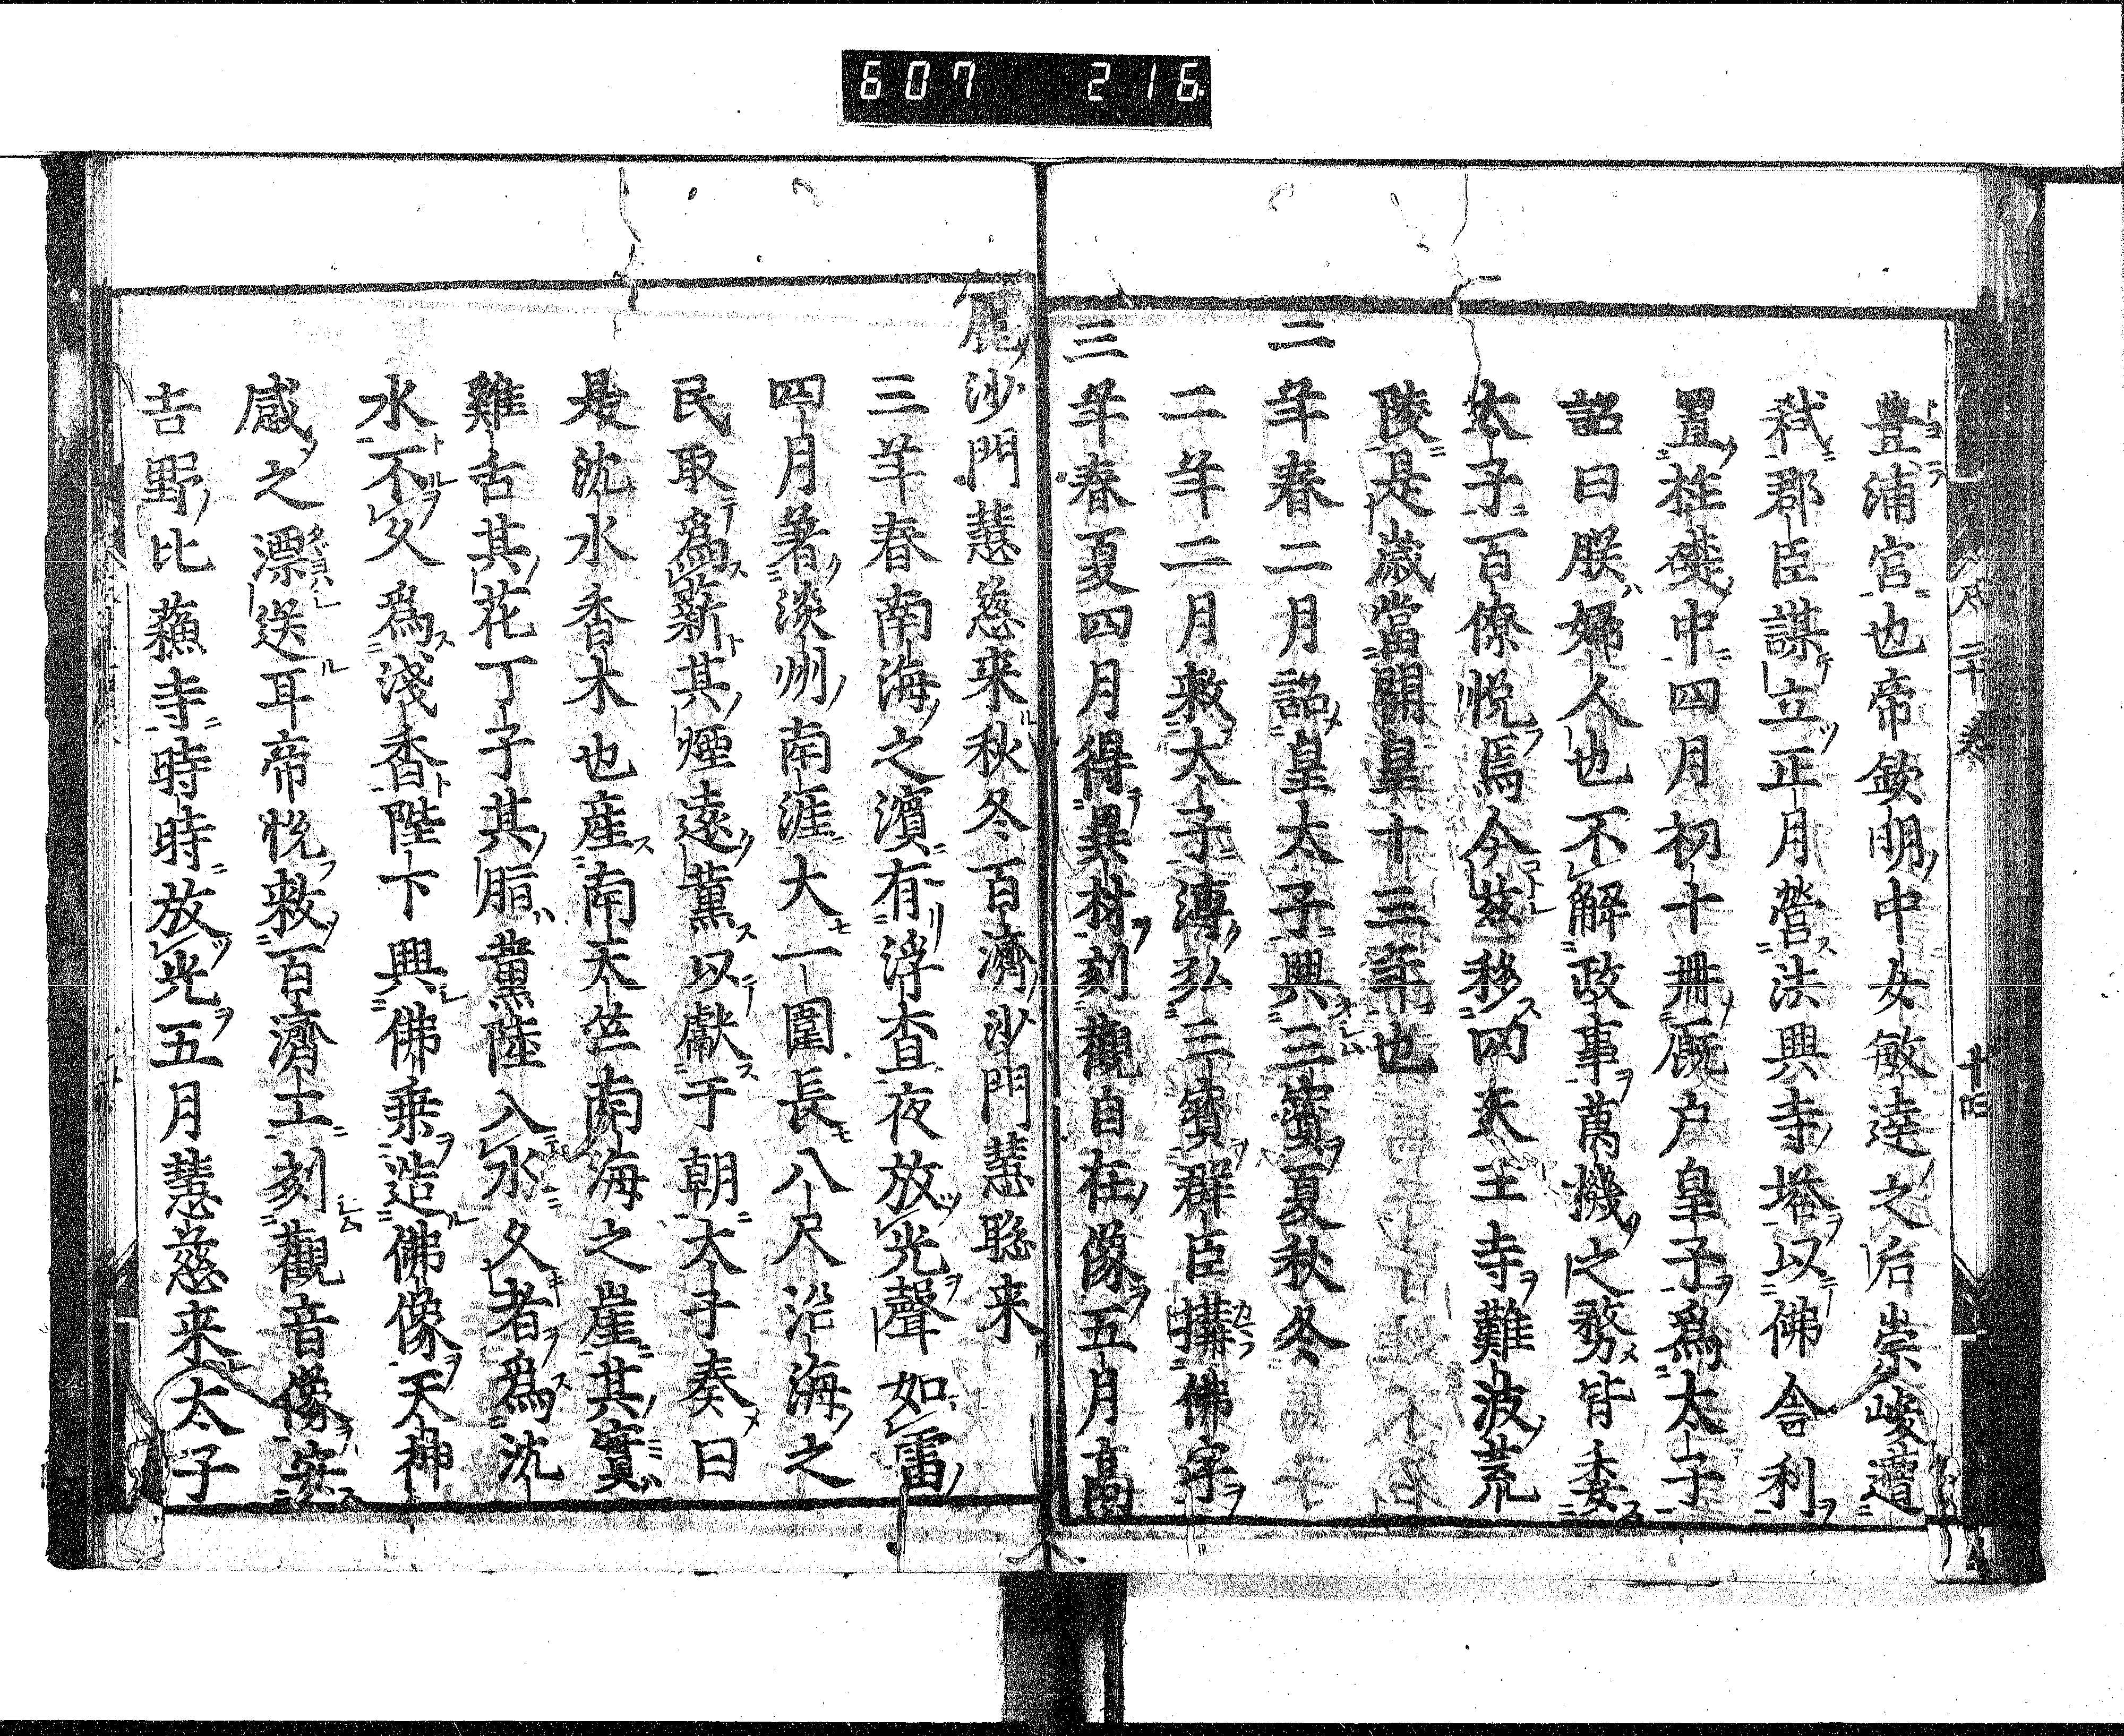 607 216
豊浦宮也帝欽明中女敏達之后崇峻遭
弑郡臣謀立正月營法興寺塔以佛舎利
置柱礎中四月初十卌厩户皇子爲太子
詔曰朕婦人也不解政事萬機之務皆委
太子百僚悦焉今茲移四天王寺難波荒
陵是歳當開皇十三年也
二年春二月詔皇太子興三寳夏秋冬
二年二月敕太子溥弘三寳群臣搆佛宇
三年春夏四月得異材刻觀自在像五月高
麗沙門慧慈来秋冬百濟沙門慧聡来
三年春南海之濵有浮査夜放光聲如雷
四月著淡州南涯大一圍長八尺沿海之
民取爲薪其煙遠薫以獻于朝太子奏曰
是沈水香木也産南天竺南海之崖其實
雞舌其花丁子其脂薫陸入水久者爲沈
水不久爲淺香陛下興佛乗造佛像天神
感之漂送耳帝悦敕百濟工刻觀音像安
吉野比蘓寺時時放光五月慧慈来太子